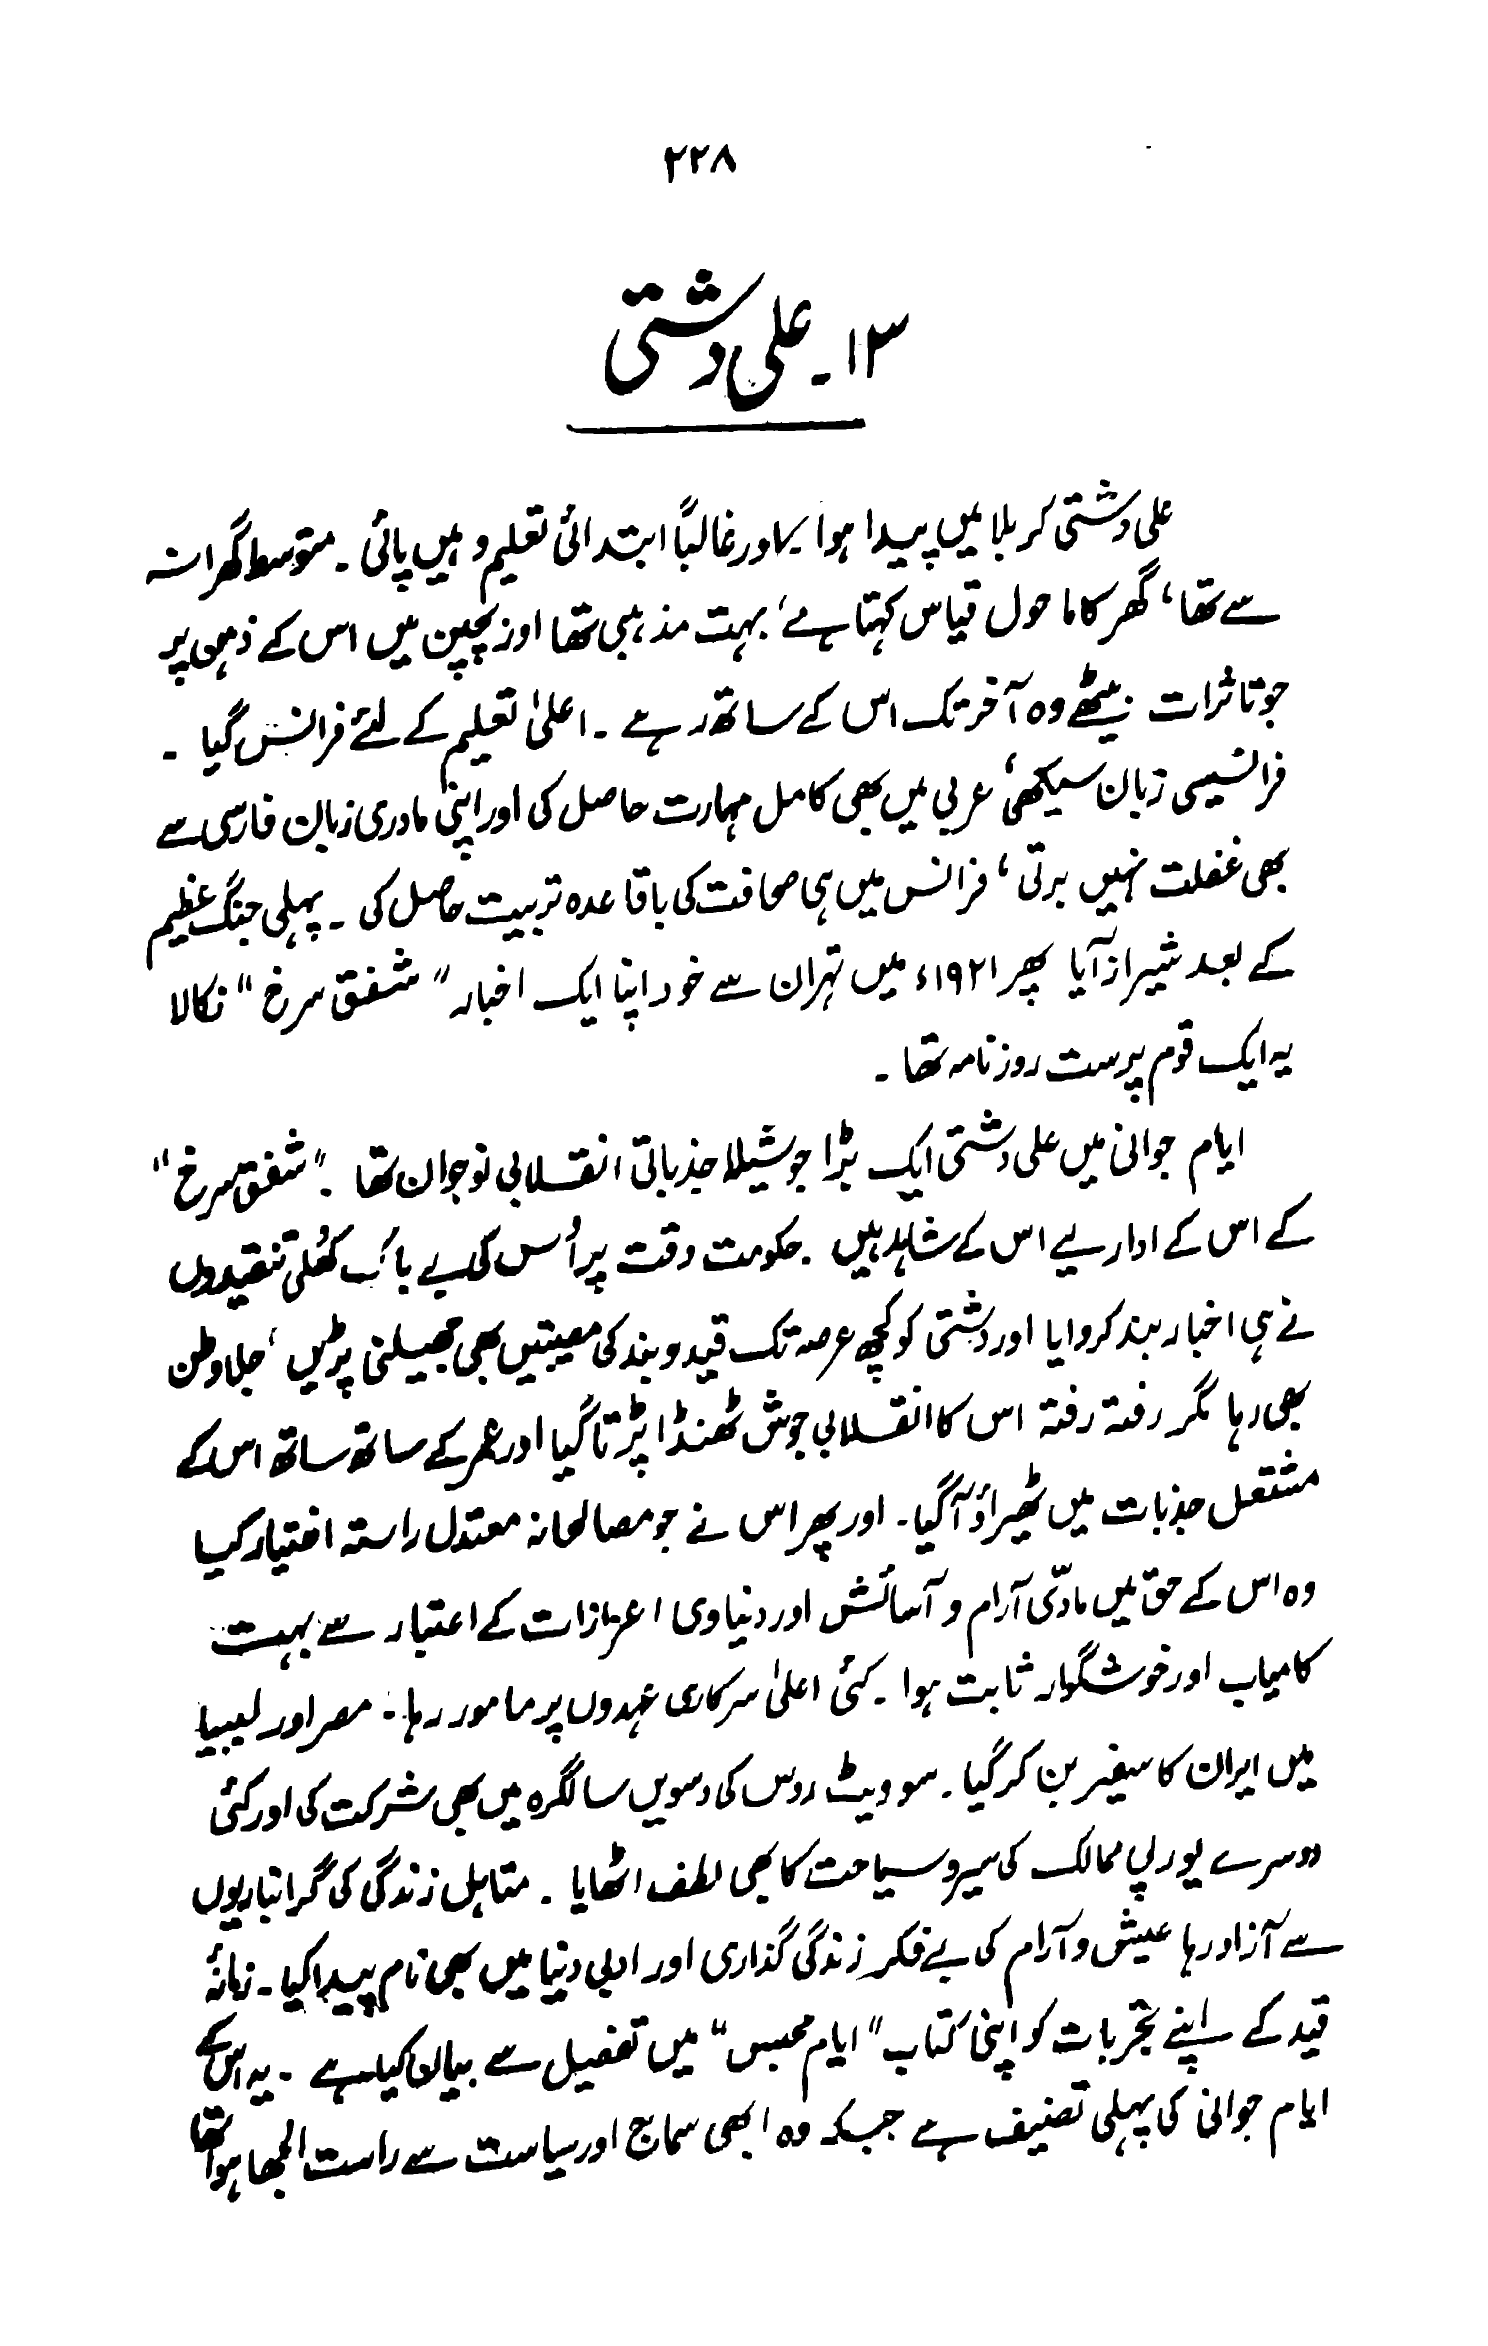 ۲۲۸
۱۳۔ علی دشتی
علی دشتی کربلا میں پیدا ہوا۔ اور غالباً ابتدائی تعلیم وہیں پائی ۔ متوسط گھرانہ
سے تھا، گھر کا ماحول قیاس کہتا ہے، بہت مذہبی تھا اور بچپن میں اس کے ذہن پر
جو تاثرات بیٹھے وہ آخر تک اس کے ساتھ رہے ۔ اعلیٰ تعلیم کے لئے فرانس گیا ۔
فرانسیسی زبان سیکھی، عربی میں بھی کامل مہارت حاصل کی اور اپنی مادری زبان فارسی سے
بھی غفلت نہیں برتی، فرانس میں ہی صحافت کی باقاعدہ تربیت حاصل کی ۔ پہلی جنگ عظیم
کے بعد شیراز آیا پھر ۱۹۲۱ء میں تہران سے خود اپنا ایک اخبار "شفق سرخ" نکالا
یہ ایک قوم پرست روزنامہ تھا ۔
ایام جوانی میں علی دشتی ایک بڑا جوشیلا جذباتی انقلابی نوجوان تھا ۔ "شفق سرخ"
کے اس کے اداریے اس کے شاہد ہیں ۔ حکومت وقت پر اُس کی بے باک کھُلی تنقیدوں
نے ہی اخبار بند کروایا اور دشتی کو کچھ عرصہ تک قید و بند کی مصیبتیں بھی جھیلنی پڑیں، جلا وطن
بھی رہا مگر رفتہ رفتہ اس کا انقلابی جوش ٹھنڈا پڑتا گیا اور عمر کے ساتھ ساتھ اس کے
مشتعل جذبات میں ٹھیراؤ آگیا۔ اور پھر اس نے جو مصالحانہ معتدل راستہ اختیار کیا
وہ اس کے حق میں مادّی آرام و آسائش اور دنیاوی اعزازات کے اعتبار سے بہت
کامیاب اور خوشگوار ثابت ہوا ۔ کئی اعلیٰ سرکاری عہدوں پر مامور رہا ۔ مصر اور لیبیا
میں ایران کا سفیر بن کر گیا ۔ سوویٹ روس کی دسویں سالگرہ میں بھی شرکت کی اور کئی
دوسرے یورپی ممالک کی سیر و سیاحت کا بھی لطف اٹھایا ۔ متاہل زندگی کی گرانباریوں
سے آزاد رہا عیش و آرام کی بے فکر زندگی گذاری اور ادبی دنیا میں بھی نام پیدا کیا ۔ زمانۂ
قید کے اپنے تجربات کو اپنی کتاب "ایام محبس" میں تفصیل سے بیان کیا ہے ۔ یہ اس کے
ایام جوانی کی پہلی تصنیف ہے جبکہ وہ ابھی سماج اور سیاست سے راست الجھا ہوا تھا